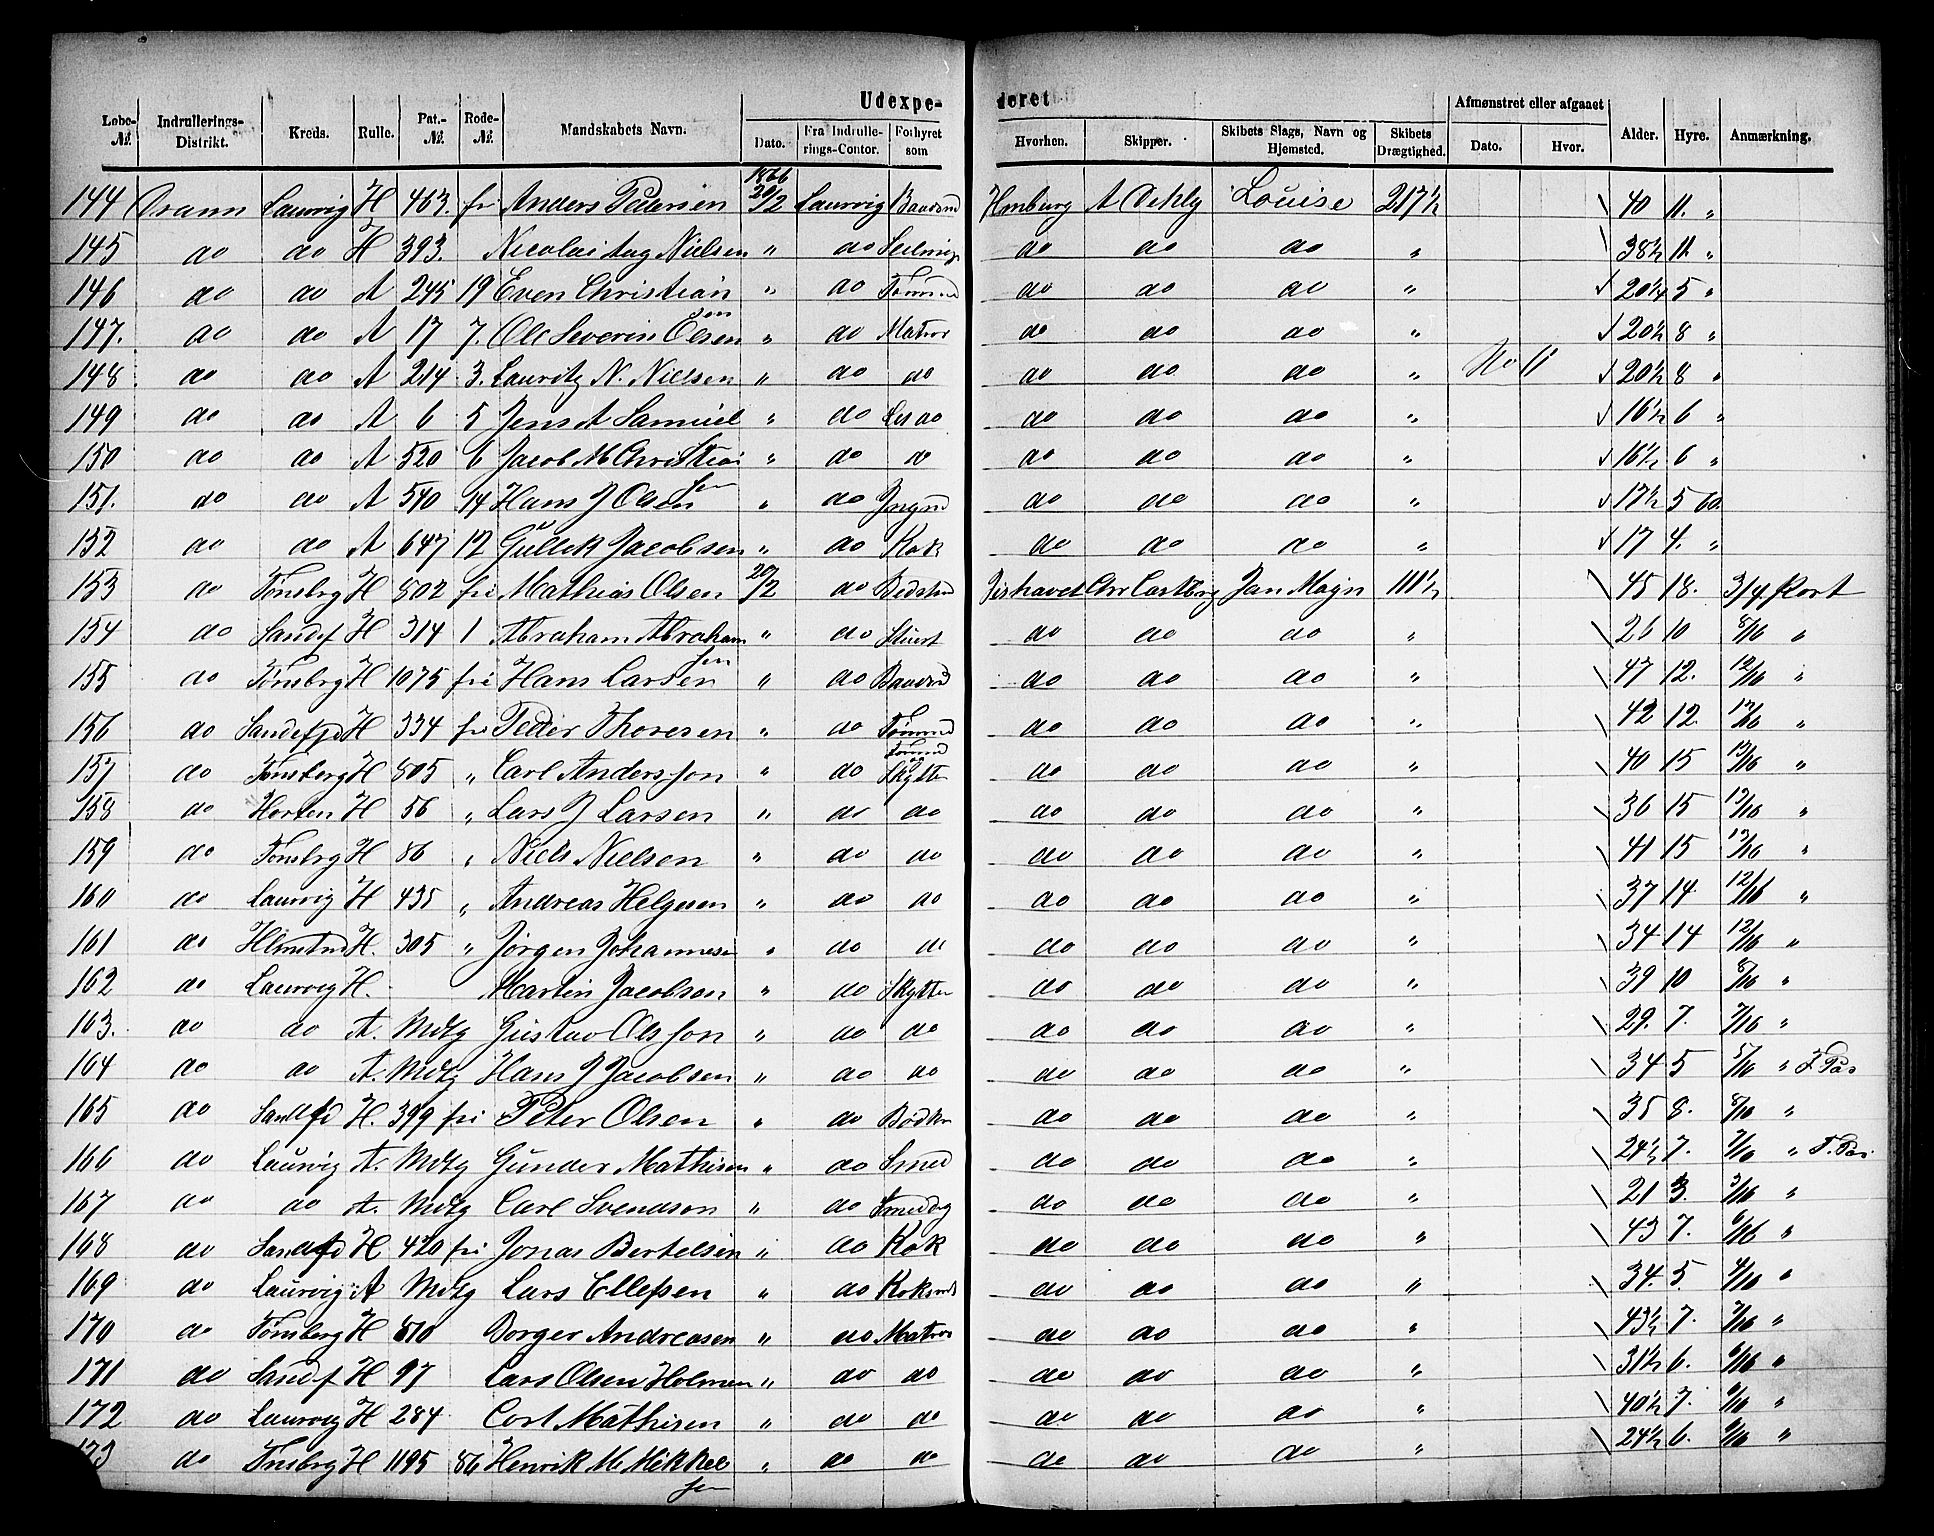 Udexpe-
deret
Løbe-№. Indrullerings-Distrikt. Kreds. Rulle. Pat.-№. Rode-№. Mandskabets Navn. Dato. Fra Indrullerings-Contor. Forhyret som Hvorhen. Skipper. Skibets Slags, Navn og Hjemsted. Skibets Drægtighed. Afmønstret eller afgaaet Dato. Hvor. Alder. Hyre. Anmærkning.
1866
144 Dramn Laurvig H 463. fri Anders Pedersen 20/2 Laurvig Baadsmd Hmburg A Dehly Louise 217½ 40 11. „
145 do do H 393. Nicolai Aug Nielsen „ do Seilm do do do „ 38½ 11 „
146 do do A 245 19 Even Christiansen „ do Tømmd do do do „ 20¼ 5 „
147. do do A 17 7. Ole Severin Olsen „ do Matros do do do „ 20½ 8 „
148 do do A 214 3. Lauritz N. Nielsen „ do do do do do „ 20½ 8 „
149 do do A 6 5 Jens A Samuel „ do Let do do do do „ 16½ 6 „
150 do do A 520 6 Jacob M Christiansen „ do do do do do „ 16½ 6 „
151. do do A 540 14 Hans J Olsen „ do Jngmd do do do „ 17½ 5 60
152 do do A 647 12 Gullek Jacobsen „ do Kok do do do „ 17 4. „
153 do Tønsbrg H 802 fri Mathias Olsen 20/2 do Bedstmd Jishavet Chr Castbrg Jan Mayn 111½ 45 18. 3/4 Port
154 do Sandef H 314 1 Abraham Abrahamsen „ do Stuert do do do „ 26 10 8/16 „
155 do Tønsbrg H 1075 fri Hans Larsen „ do Baadsmd do do do „ 47 12. 12/16 „
156 do Sandefjd H 334 fri Peder Thoresen „ do Tømmd do do do „ 42 12. 12/16 „
157 do Tønsberg H 805 „ Carl Andersson „ do Tømmd og Skytter do do do „ 40 15 13/16 „
158 do Horten H 56 „ Lars J Larsen „ do do do do do „ 36 15 13/16 „
159 do Tønsbrg H 86 „ Niels Nielsen „ do do do do do „ 41 15 13/16 „
160 do Laurvig H 435 „ Andreas Helgesen „ do do do do do „ 37 14. 12/16 „
161 do Hlmstrnd H. 305 „ Jørgen Johannesen „ do do do do do „ 34 14 12/16 „
162 do Laurvig H. Martin Jacobsen „ do Skytter do do do „ 39 10 8/16 „
163. do do A. Mdtg Gustav Olsson „ do do do do do „ 29. 7. 7/16 „
164 do do A. Mdtg Hans J Jacobsen „ do do do do do „ 34 5 5/16 „ F Pas
165 do Sandefd H. 399 fri Peter Olsen „ do Bødker do do do „ 35 8. 8/16 „
166 do Laurvig A. Mdtg Gunder Mathisen „ do Smed do do do „ 24½ 7. 7/16 „ F. Pas.
167 do do A. Mdtg Carl Svendsen „ do Smeddrg do do do „ 21 3. 3/16 „
168 do Sandefd H 420 fri Jonas Bertelsen „ do Kok do do do „ 43 7. 6/16 „
169 do Laurvig A Mdtg Lars Ellefsen „ do Koksmd do do do „ 34. 5. 4/16 „
170 do Tønsberg H 810 Borger Andreasen „ do Matros do do do „ 43½ 7. 7/16 „
171 do Sandf H 97 Lars Olsen Holmen „ do do do do do „ 31½ 6. 6/16 „
172 do Laurvig H 284 Cort Mathisen „ do do do do do „ 40½ 7. 6/16 „
173 do Tnsbrg H 1195 86 Henrik M Mikkelsen „ do do do do do „ 24½ 6. 6/16 „